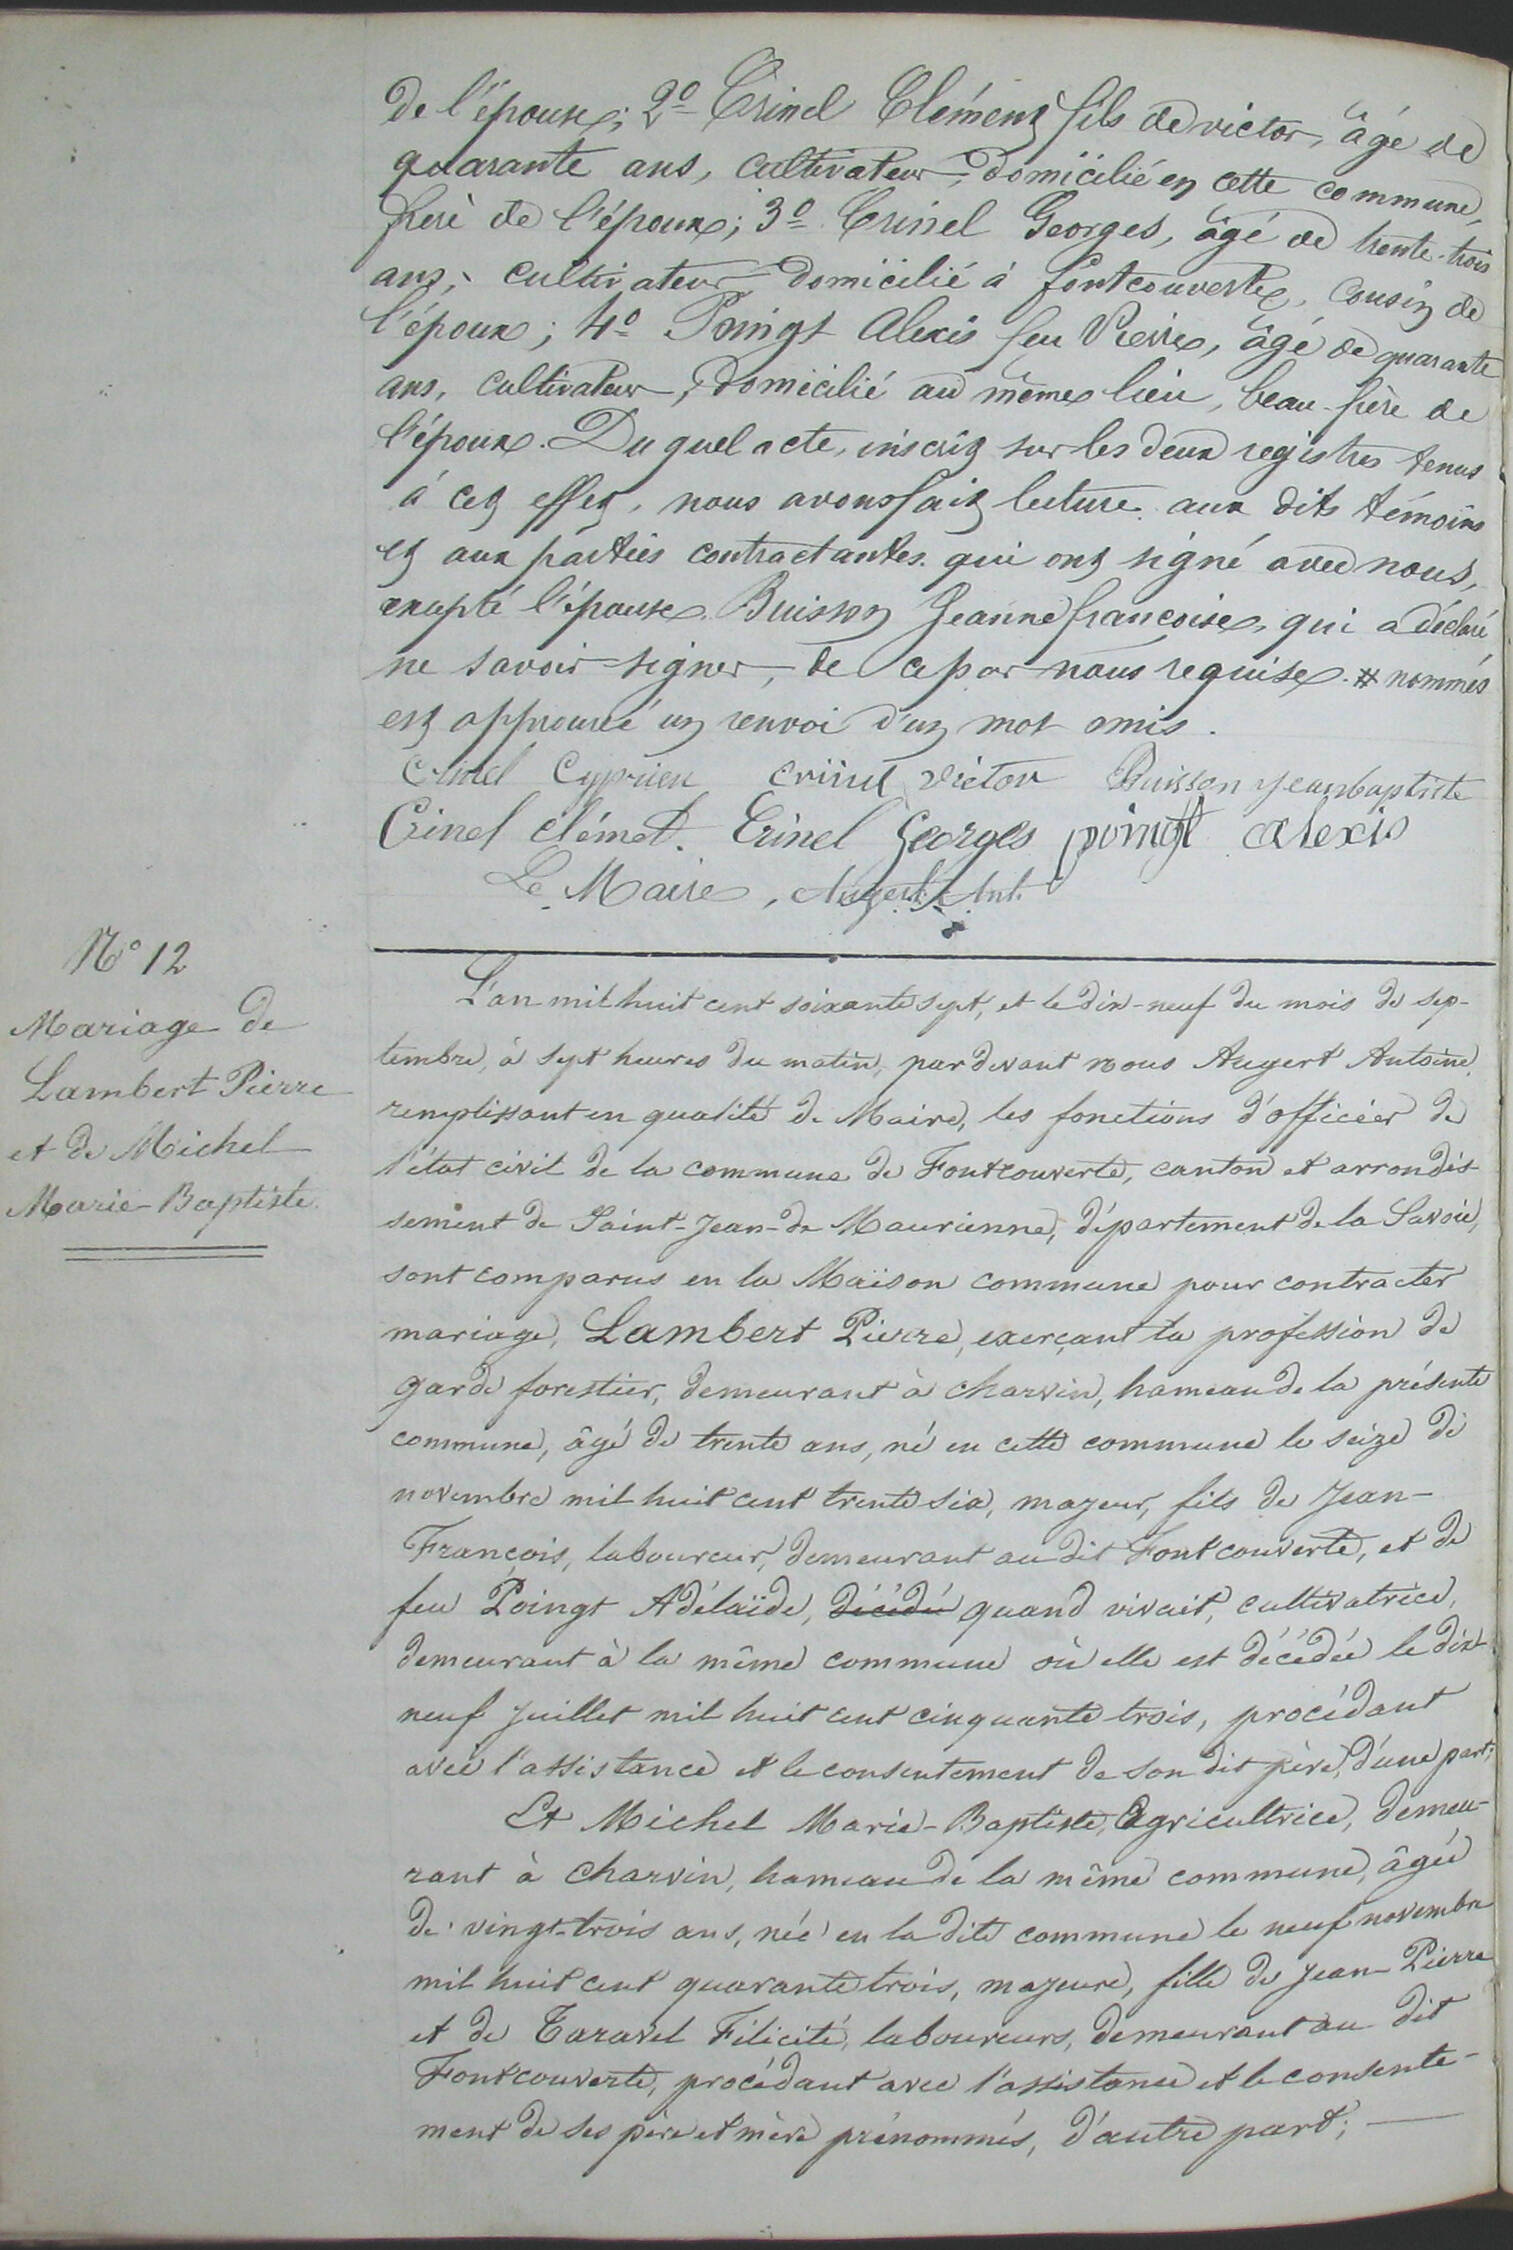 de l'épouse; 2º Crinel Clément fils de victor, âgé de
quarante ans, cultivateur, domicilié en cette commune,
frère de l'époux; 3º Crinel Georges, âgé de trente-trois
ans, cultivateur domicilié à fontcouverte, cousin de
l'époux; 4º Poingt Alexis feu Pierre, âgé de quarante
ans, cultivateur, domicilié au même lieu, beau-frère de
l'époux. Du quel acte, inscrit sur les deux registres tenus
à cet effet, nous avons fait lecture aux dits témoins
et aux parties contractantes qui ont signé avec nous,
excepté l'épouse Buisson Jeanne françoise, qui a déclaré
ne savoir signer, de ce par nous requise. # nommés
est approuvé un renvoi d'un mot omis.
Crinel Cyprien crinel victor Buisson jeanbaptiste
Crinel clémet. Crinel Georges poingt alexis
Le Maire, Augert Ant.
Nº 12
Mariage de
Lambert Pierre
et de Michel
Marie-Baptiste.
L'an mil huit cent soixante sept, et le dix-neuf du mois de sep-
tembre, à sept heures du matin, pardevant nous Augert Antoine,
remplissant en qualité de Maire, les fonctions d'officier de
l'état civil de la commune de Fontcouverte, canton et arrondis-
sement de Saint-Jean-de Maurienne, département de la Savoie,
sont comparus en la Maison commune pour contracter
mariage, Lambert Pierre, exerçant la profession de
garde forestier, demeurant à charvin, hameau de la présente
commune, âgé de trente ans, né en cette commune le seize de
novembre mil huit cent trente six, majeur, fils de Jean-
François, laboureur, demeurant au dit Fontcouverte, et de
feu Poingt Adélaïde, décédé quand vivait, cultivatrice,
demeurant à la même commune où elle est décédée le dix-
neuf juillet mil huit cent cinquante trois, procédant
avec l'assistance et le consentement de son dit père, d'une part;
Et Michel Marie-Baptiste, Agricultrice, demeu-
rant à charvin, hameau de la même commune, âgée
de vingt-trois ans, née en la dite commune le neuf novembre
mil huit cent quarante trois, majeure, fille de Jean-Pierre
et de Taravel Félicité, laboureurs, demeurant au dit
Fontcouverte, procédant avec l'assistance et le consente-
ment de ses père et mère prénommés, d'autre part;